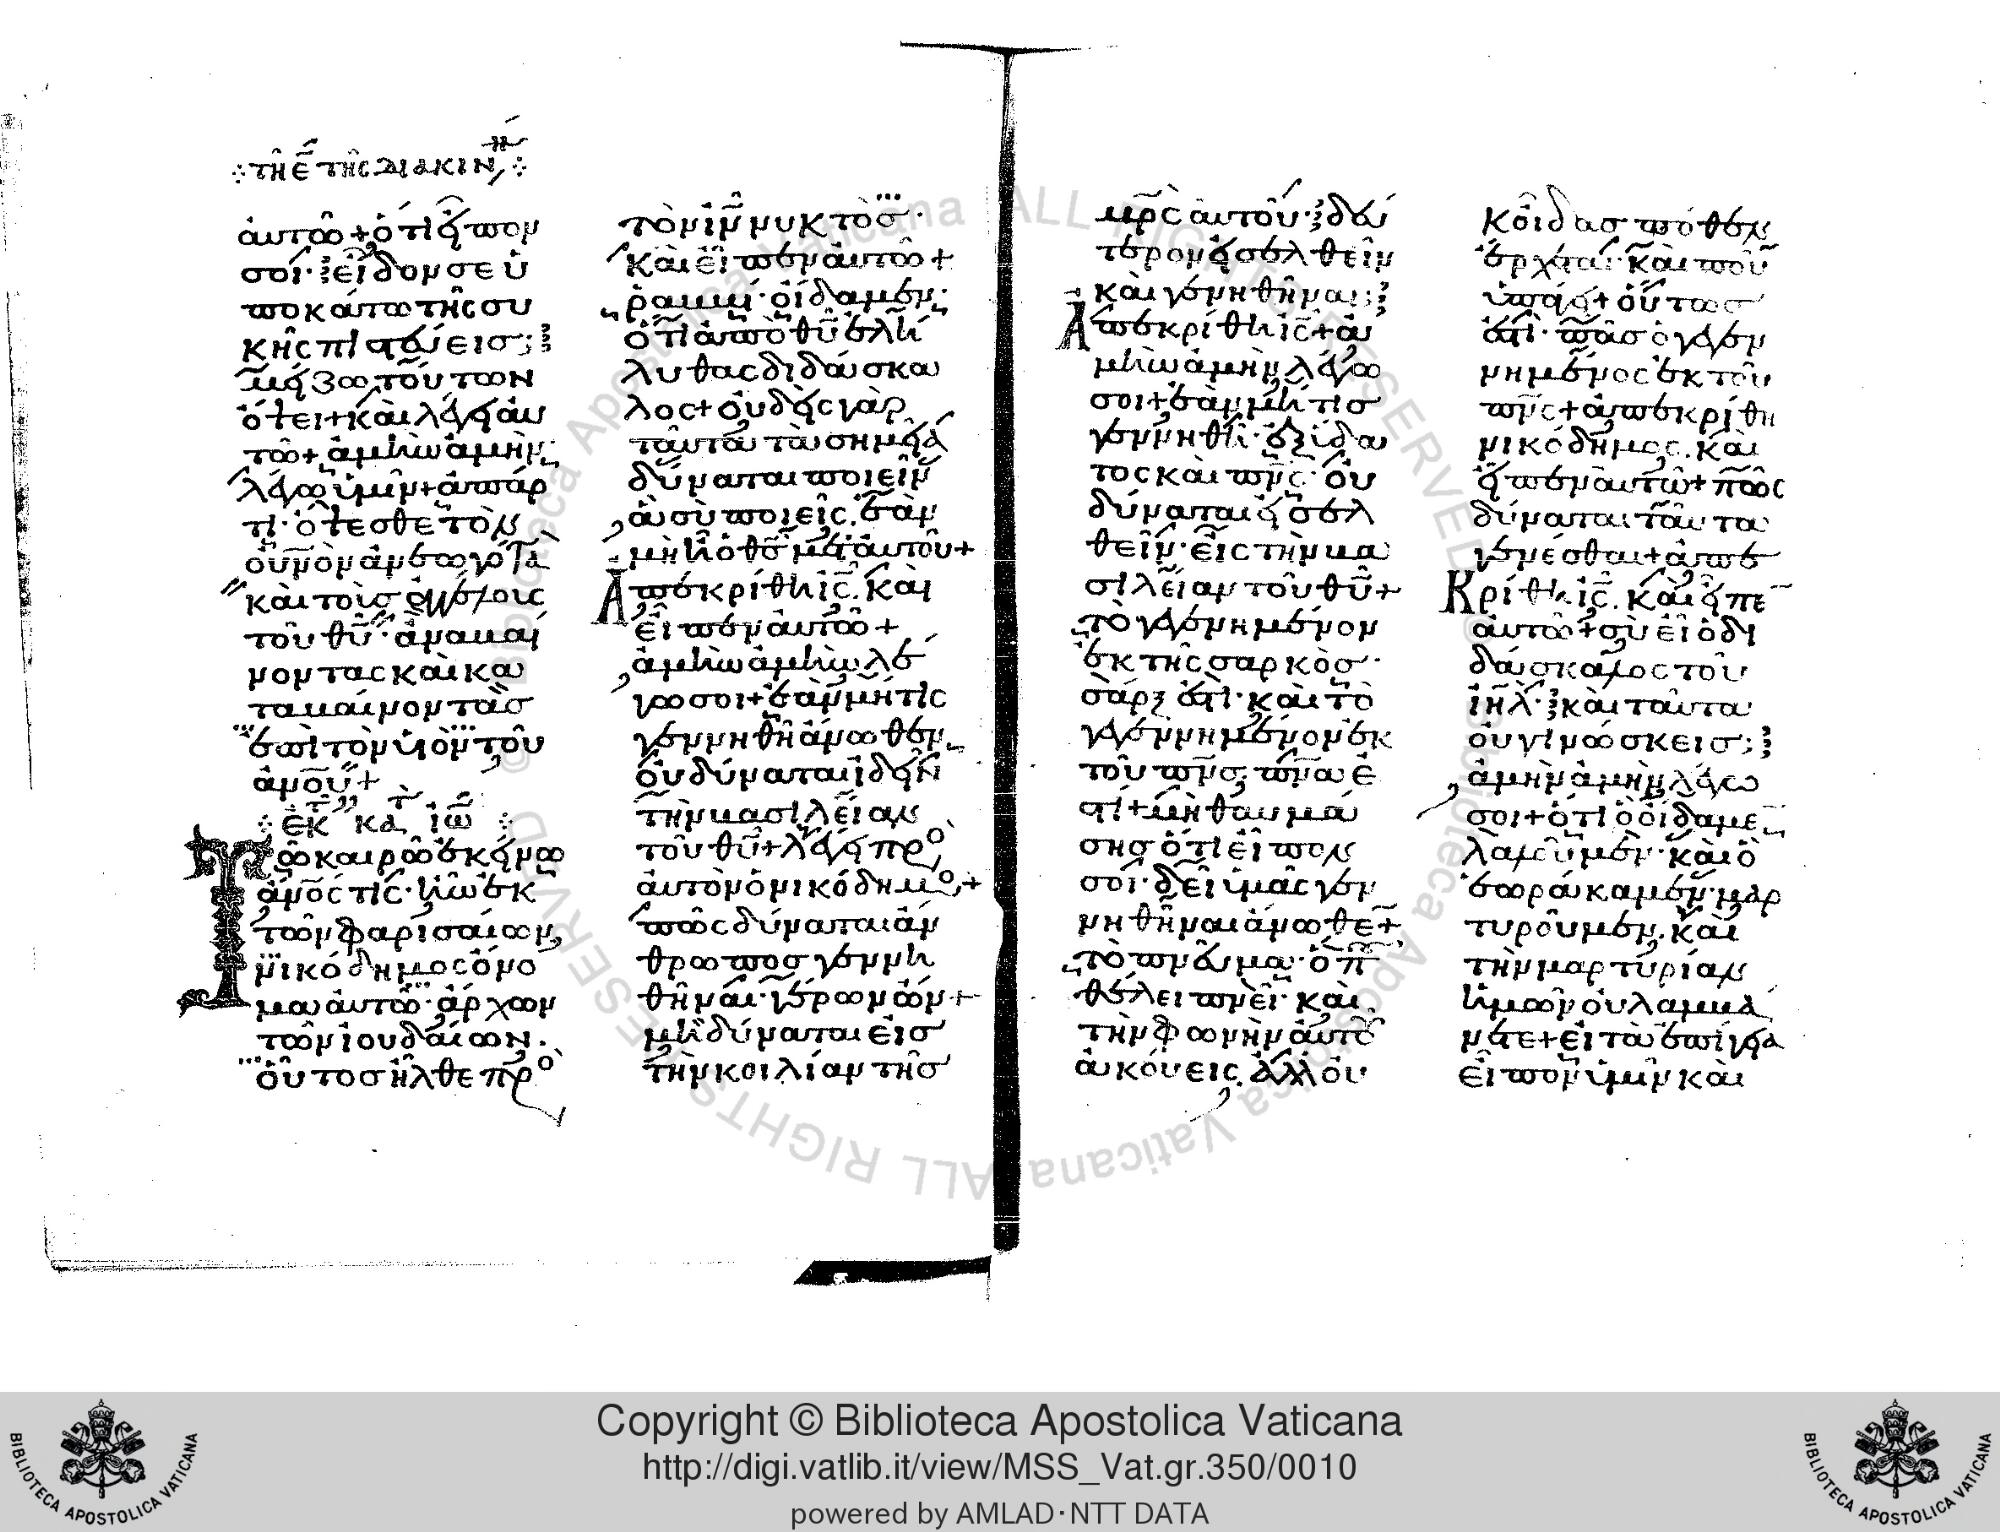 τῆ ε̄ τῆς διακιν
αὐτῶ + ὅτι εἶπον
σοί· εἶδον σε ὑ
ποκάτω τῆς συ
κῆς πιστεύεις;
μείζω τούτων
ὄψει + καὶ λέγει αὐ
τῶ + ἀμὴν ἀμὴν·
λέγω ὑμῖν + ἀπάρ
τι· ὄψεσθε τὸν
οὐνὸν ἀνεωγότα
καὶ τοὺς ἀγγέλους
τοῦ θῦ· ἀναβαί
νοντας καὶ κα
ταβαίνοντας
ἐπὶ τὸν υἱὸν τοῦ
ἀνοῦ +
ἐκ τ κατ ἰω
Τῶ καιρῶ ἐκείνω
ἀνος τίς· ἦν ἐκ
τῶν φαρισαίων,
νικόδημος ὄνο
μα αὐτῶ· ἄρχων
τῶν ἰουδαίων.
οὗτος ἦλθε πρὸ
τὸν ἰν νυκτὸς·
καὶ εἶπεν αὐτῶ +
ῥαββί· οἴδαμεν·
ὅτι ἀπὸ θῦ ἐλή
λυθας διδάσκα
λος + οὐδεὶς γὰρ
ταῦτα τὰ σημεῖα
δύναται ποιεῖν
ἃ σὺ ποιεῖς, ἐὰν
μὴ ἦ ὁ θς μετ' αὐτοῦ +
Ἀπεκρίθη ἰς, καὶ
εἶπεν αὐτῶ +
ἀμὴν ἀμὴν λέ
γω σοι + ἐὰν μή τις
γεννηθῆ ἄνωθεν,
οὐ δύναται ἰδεῖν
τὴν βασιλείαν
τοῦ θῦ + λέγει πρὸ
αὐτὸν ὁ νικόδημο, +
πῶς δύναται ἄν
θρωπος γεννη
θῆναι· γέρων ὢν +
μὴ δύναται εἰς
τὴν κοιλίαν τῆς
μρς αὐτοῦ· δεύ
τερον εἰσελθεῖν
καὶ γεννηθῆναι;
Ἀπεκρίθη ἰς + ἀ
μὴν ἀμὴν λέγω
σοι + ἐὰν μή τις
γεννηθῆ· ἐξ ὕδα
τος καὶ πνς· οὐ
δύναται εἰσελ
θεῖν· εἰς τὴν βα
σιλείαν τοῦ θῦ +
τὸ γεγενημένον
ἐκ τῆς σαρκὸς·
σάρξ ἐστι· καὶ τὸ
γεγεννημένον ἐκ
τοῦ πνς, πνα ἐ
στι + μὴ θαυμά
σης ὅτι εἶπον
σοί· δεῖ ὑμᾶς γεν
νηθῆναι ἄνωθε +
τὸ πνεῦμα· ὅπ
θέλει πνεῖ· καὶ
τὴν φωνὴν αὐτοῦ
ἀκούεις, ἀλλ' οὐ
κ οἶδας πόθεν
ἔρχεται· καὶ ποῦ
ὑπάγει + οὕτως
ἐστὶ· πᾶς ὁ γεγεν
νημένος ἐκ τοῦ
πνς + ἀπεκρίθη
νικόδημος, καὶ
εἶπεν αὐτῶ + πῶς
δύναται ταῦτα
γενέσθαι + ἀπε
Κρίθη ἰς, καὶ εἶπε
αὐτῶ + σὺ εἶ ὁ δι
δάσκαλος τοῦ
ἰηλ· καὶ ταῦτα
οὐ γινώσκεις;
ἀμὴν ἀμὴν λέγω
σοι + ὅτι ὃ οἴδαμε
λαλοῦμεν· καὶ ὃ
ἑωράκαμεν· μαρ
τυροῦμεν, καὶ
τὴν μαρτυρίαν
ἡμῶν οὐ λαμβά
νετε + εἰ τὰ ἐπίγεια
εἶπον ὑμῖν καὶ
Copyright © Biblioteca Apostolica Vaticana
http://digi.vatlib.it/view/MSS_Vat.gr.350/0010
powered by AMLAD·NTT DATA
BIBLIOTECA APOSTOLICA VATICANA
BIBLIOTECA APOSTOLICA VATICANA